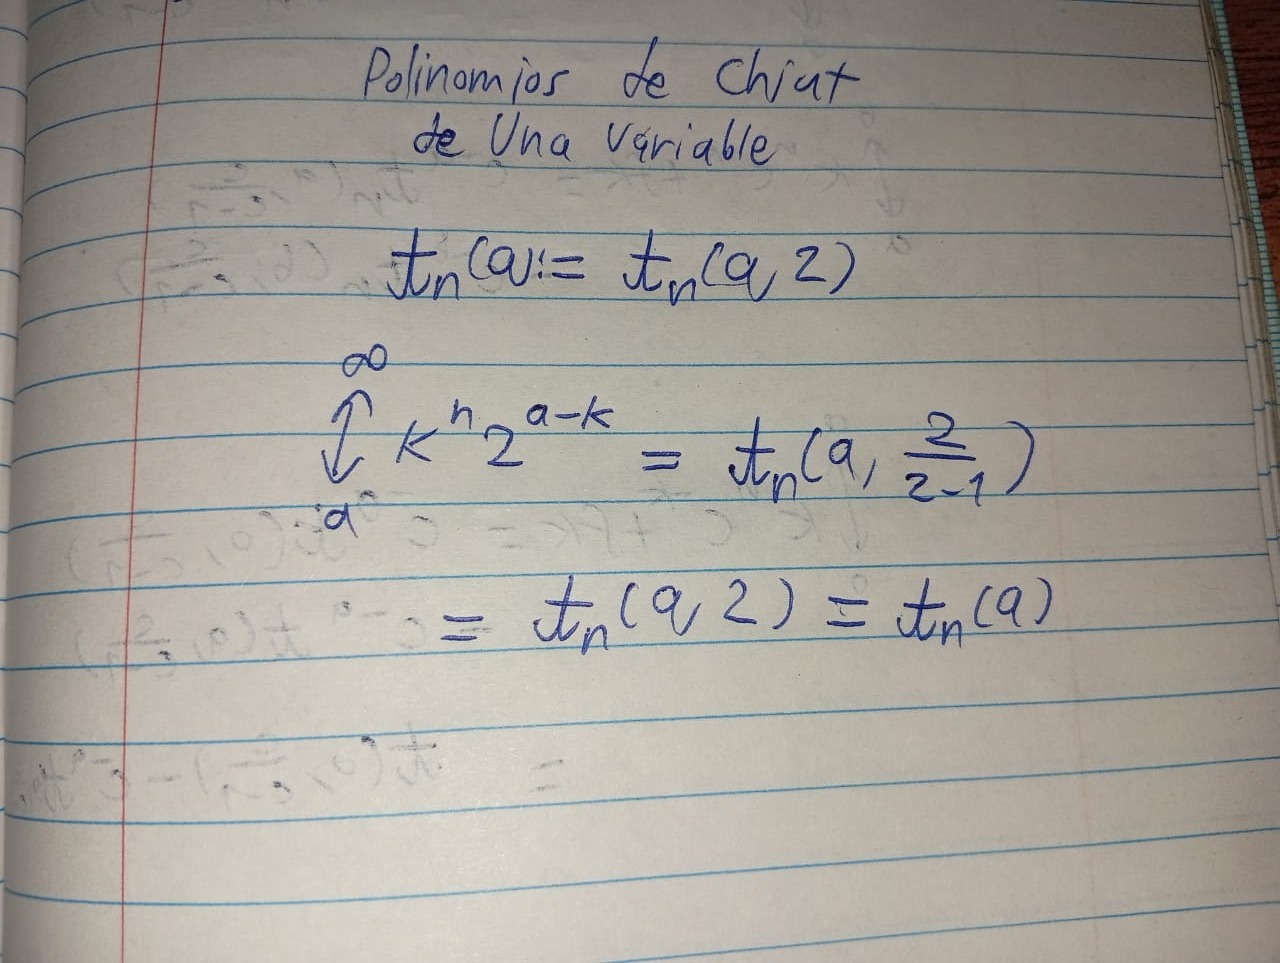 Polinomios de Chiut
de Una Variable
tn(a):= tn(a, 2)
∞
↕ k^n 2^(a-k) = tn(a, 2/(2-1))
a
= tn(a, 2) = tn(a)